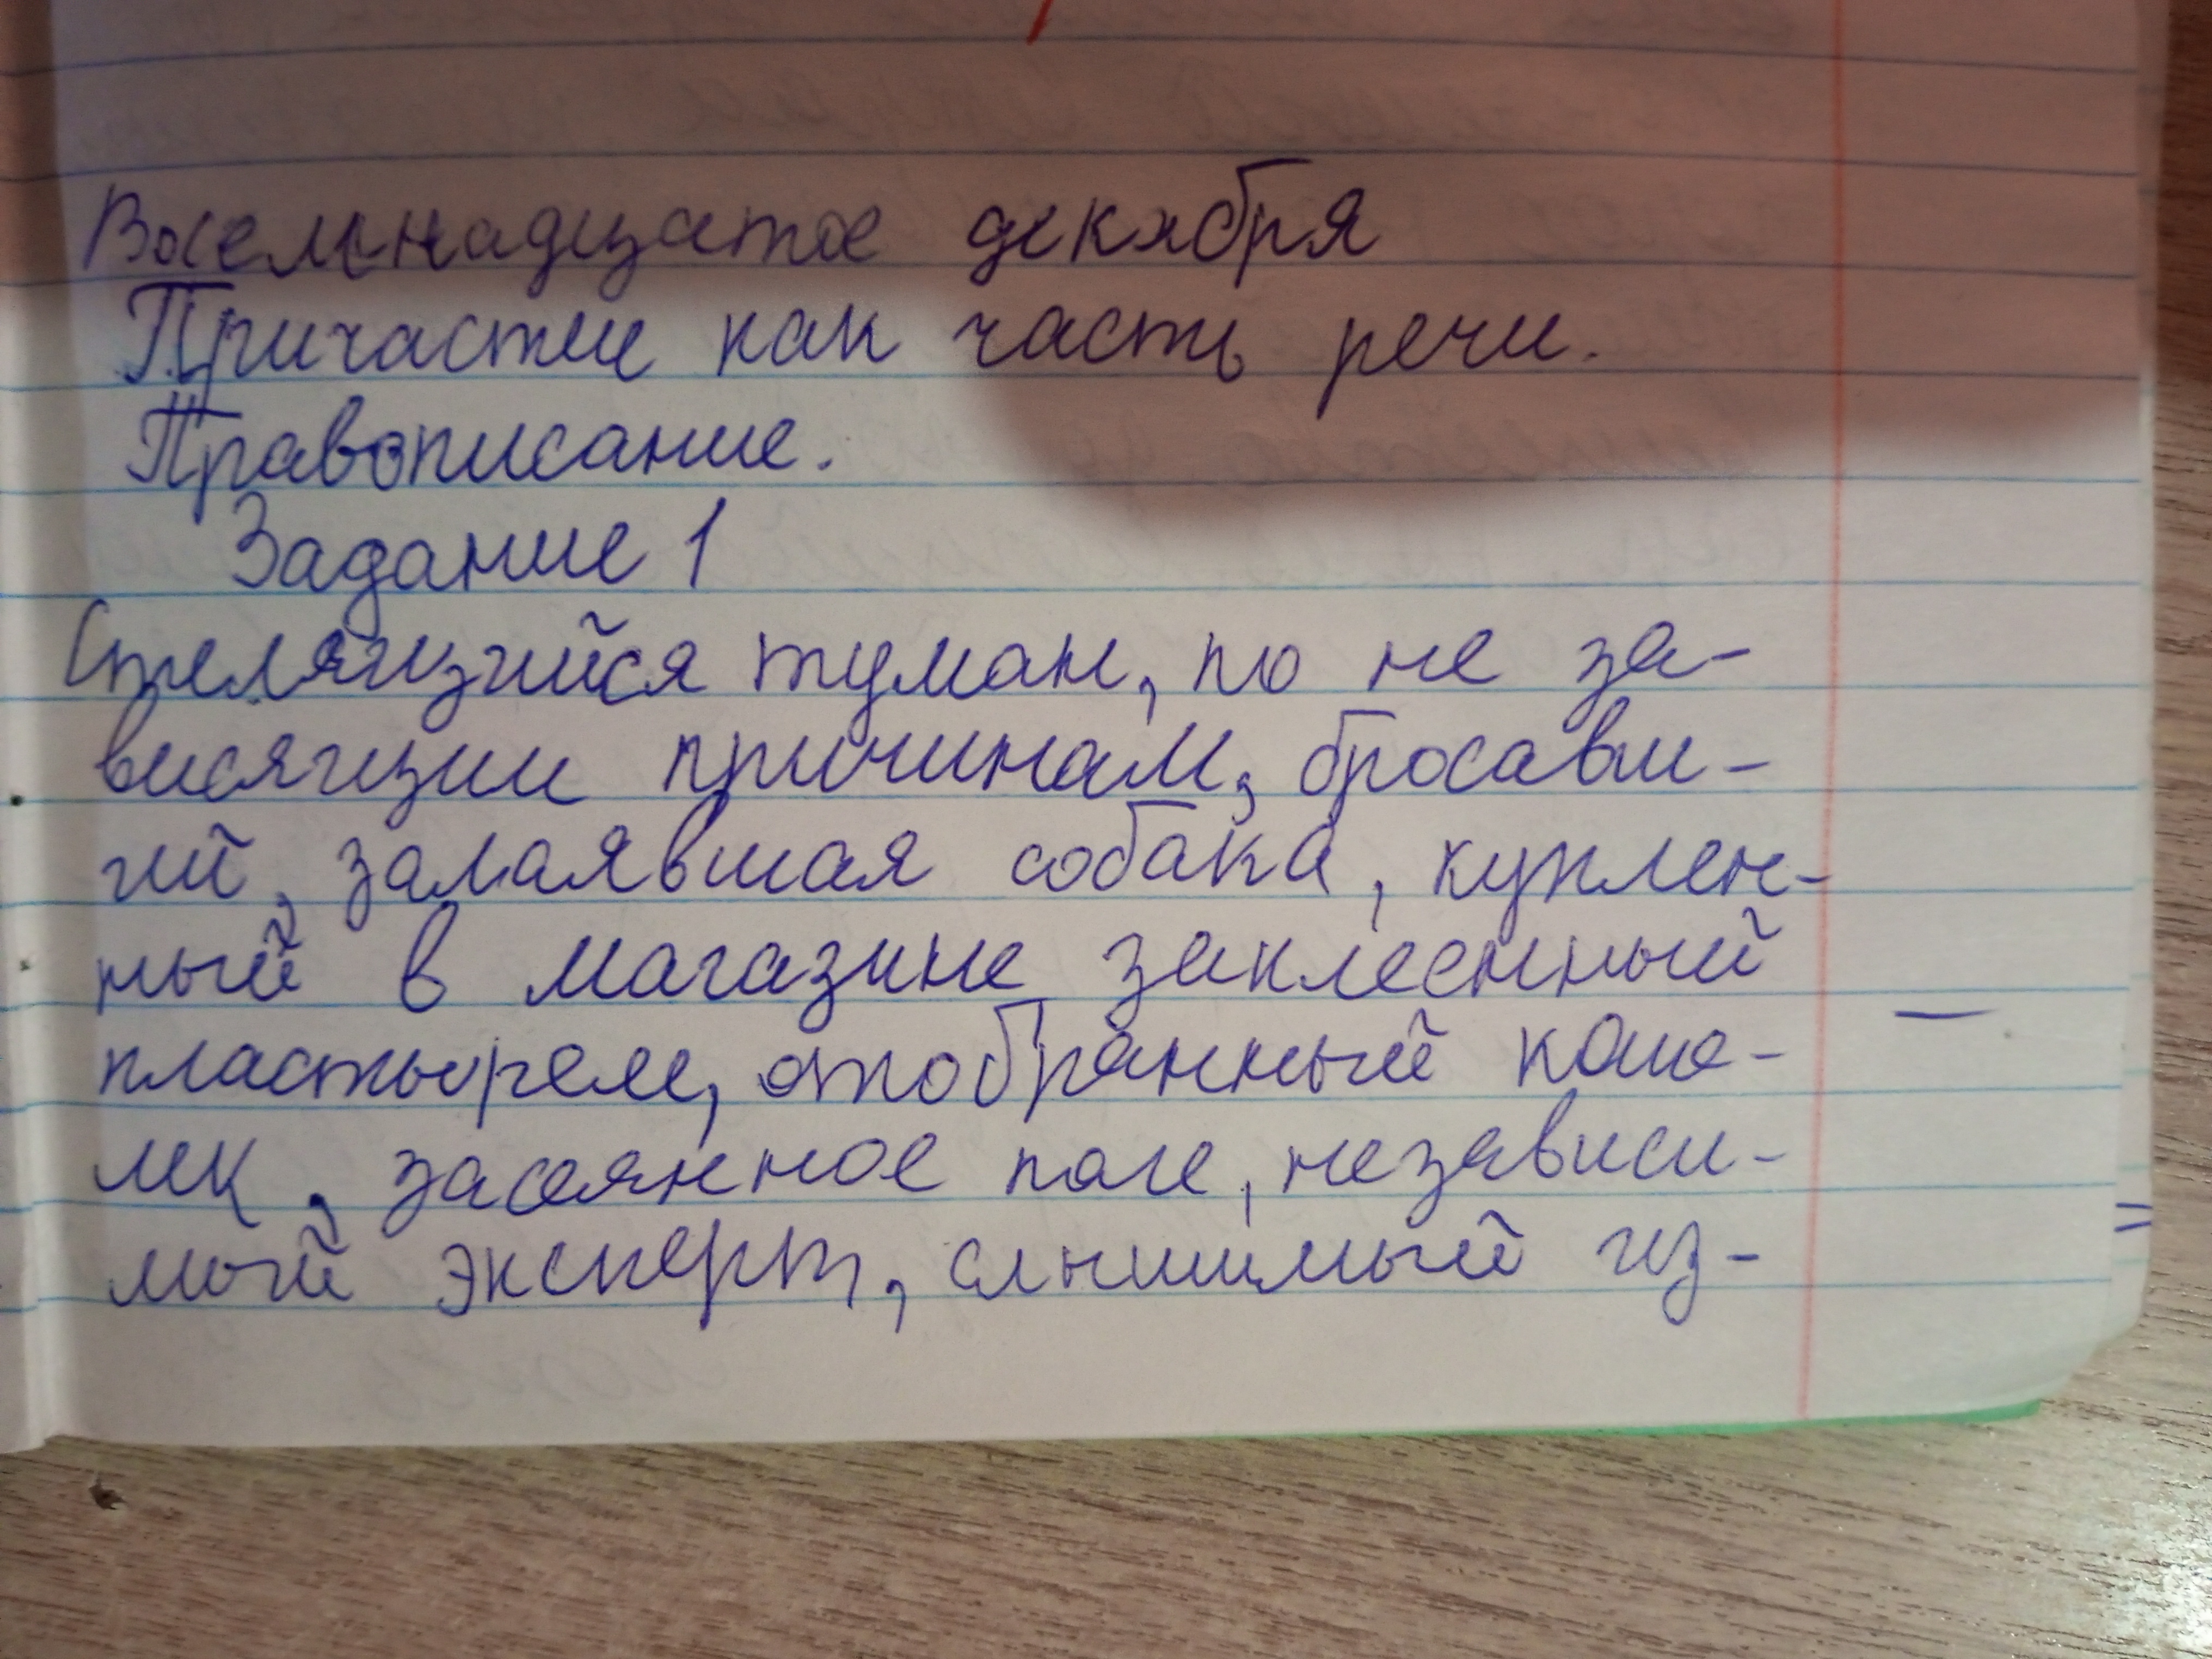 Восемнадцатое декабря
Причастие как часть речи.
Правописание.
Задание 1
Стелящийся туман, по не за-
висящим причинам, бросавш-
ий, залаявшая собака, куплен-
ный в магазине заклеенный
пластырем, отобранный коше-
лек, засеянное поле, независи-
мый эксперт, слышимый из-